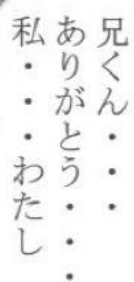 兄くん・・・
ありがとう・・・
私・・・わたし